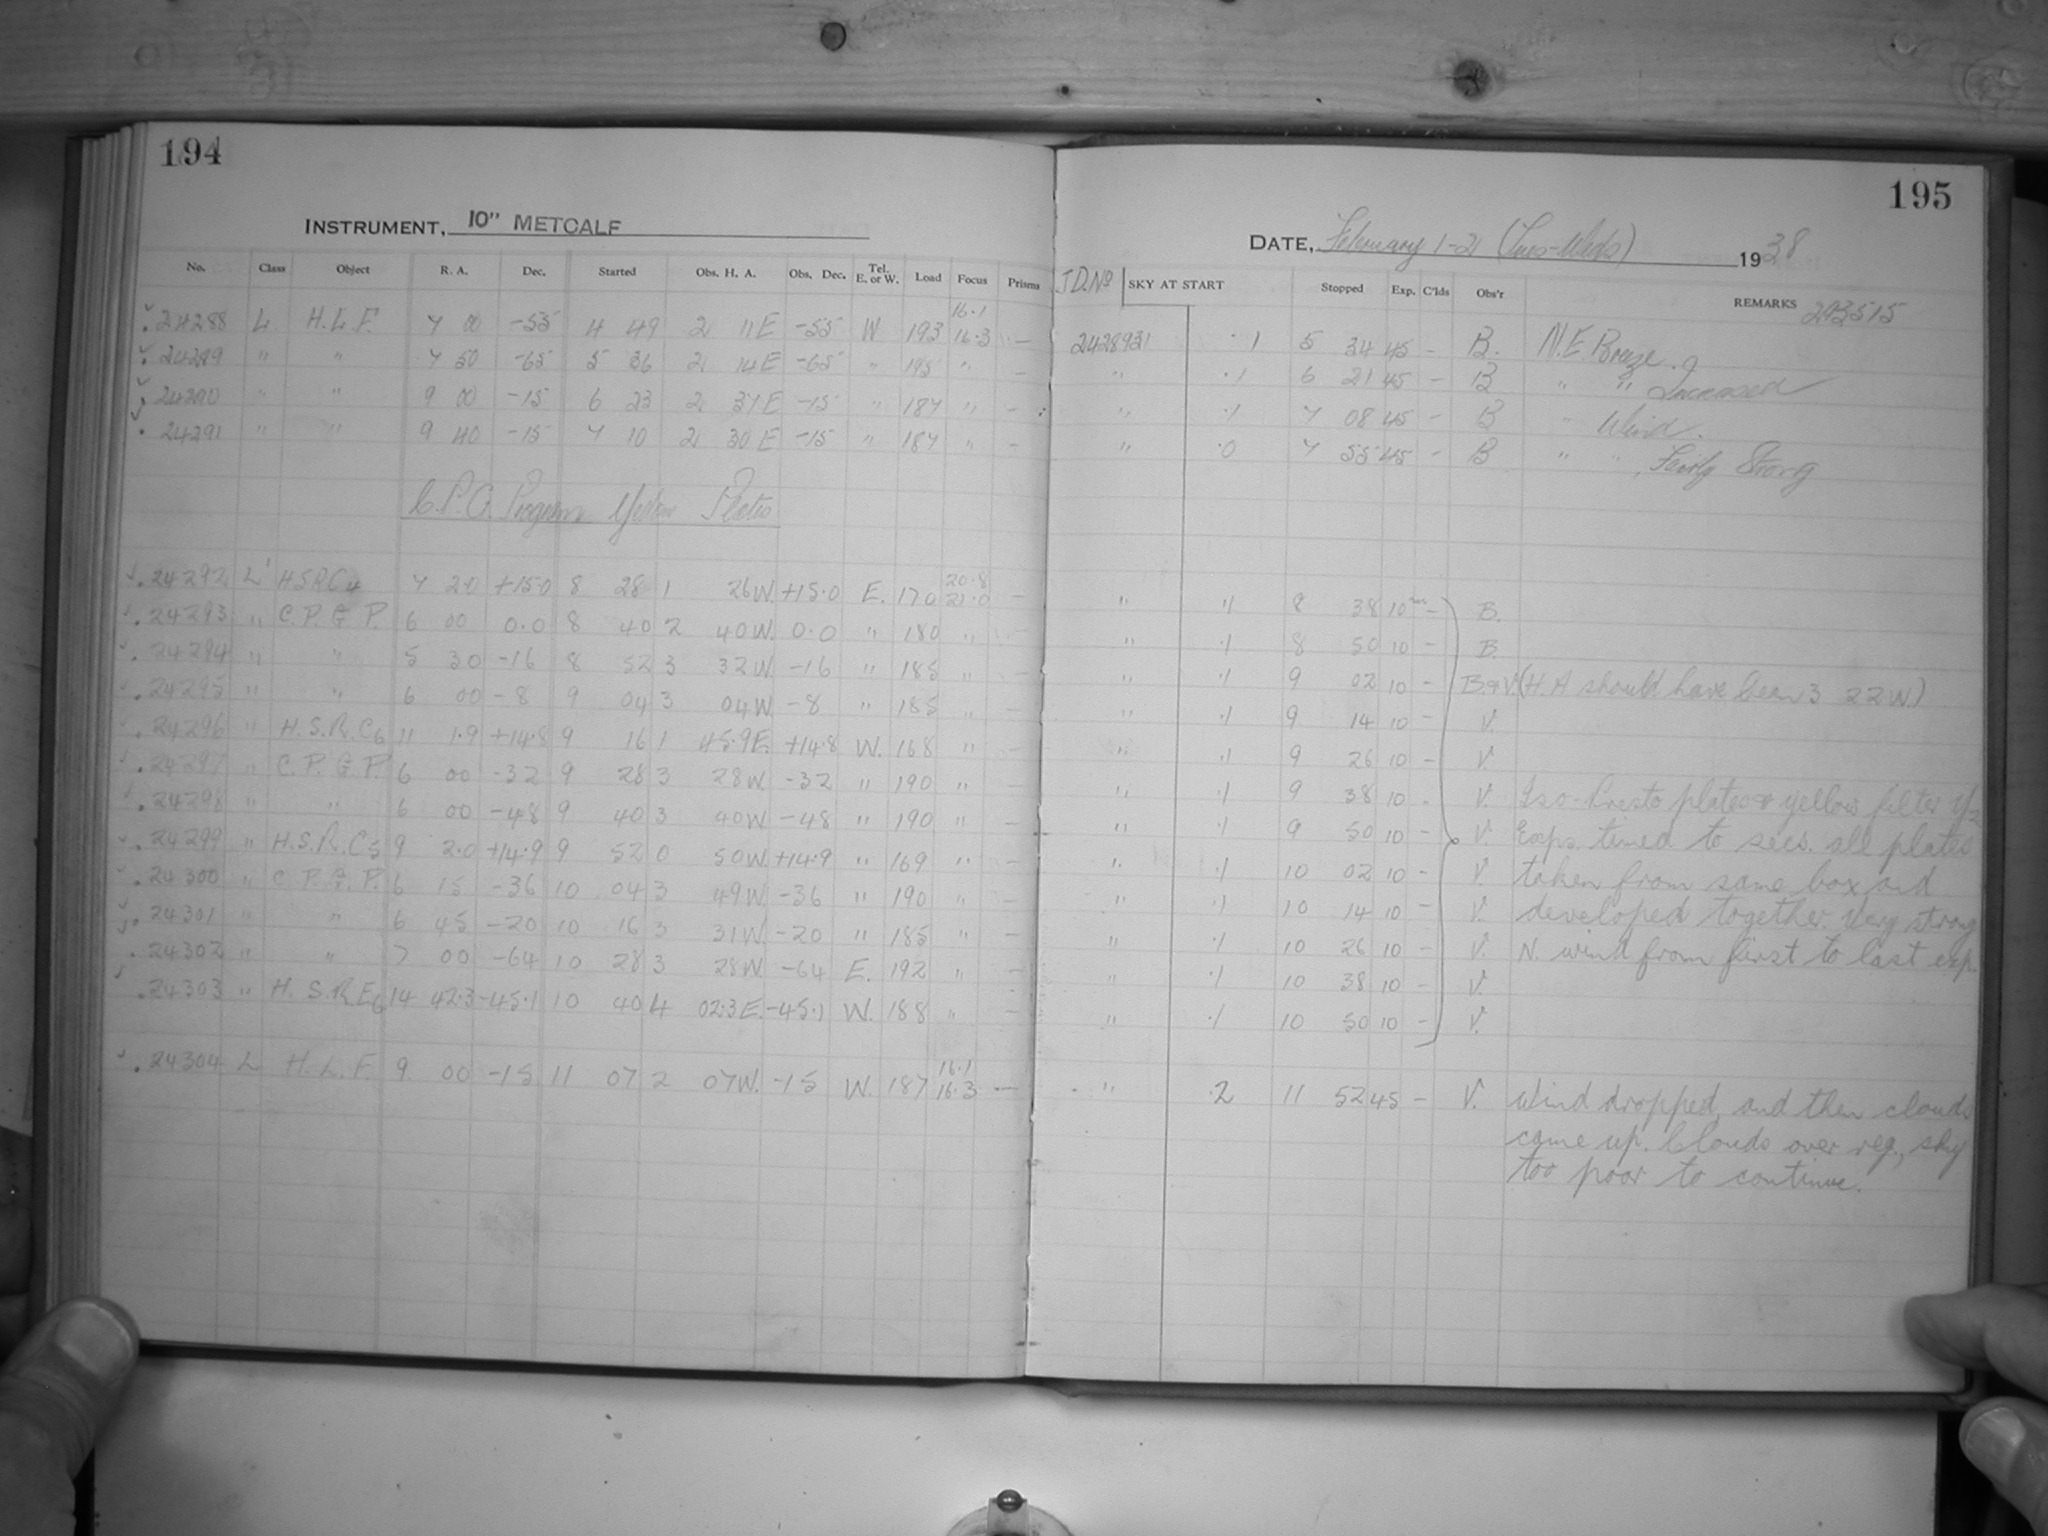 194
INSTRUMENT, 10" METCALF
No. Class Object R. A. Dec. Started Obs. H. A. Obs. Dec. Tel. E. or W. Load Focus Prisms
24288 L H.L.F. 7 00 -55 4 49 2 11E -55 W 193 16.1 16.3 —
24289 " " 7 50 -65 5 36 2 14E -65 " 195 " —
24290 " " 9 00 -15 6 23 2 37E -15 " 187 " —
24291 " " 9 40 -15 7 10 2 30E -15 " 187 " —
C.P.G. Program Yellow Plates
24292 L' H.S.R.C4 7 2.0 +15.0 8 28 1 26W. +15.0 E. 170 20.8 21.0 —
24293 " C.P.G.P. 6 00 0.0 8 40 2 40W. 0.0 " 180 " —
24294 " " 5 30 -16 8 52 3 32W. -16 " 185 " —
24295 " " 6 00 -8 9 04 3 04W. -8 " 185 " —
24296 " H.S.R.C6 11 1.9 +14.8 9 16 1 45.9E. +14.8 W. 168 " —
24297 " C.P.G.P. 6 00 -32 9 28 3 28W. -32 " 190 " —
24298 " " 6 00 -48 9 40 3 40W. -48 " 190 " —
24299 " H.S.R.C5 9 2.0 +14.9 9 52 0 50W. +14.9 " 169 " —
24300 " C.P.G.P. 6 15 -36 10 04 3 49W. -36 " 190 " —
24301 " " 6 45 -20 10 16 3 31W. -20 " 185 " —
24302 " " 7 00 -64 10 28 3 28W. -64 E. 192 " —
24303 " H.S.R.E6 14 42.3 -45.1 10 40 4 02.3E. -45.1 W. 188 " —
24304 L H.L.F. 9 00 -15 11 07 2 07W. -15 W. 187 16.1 16.3 —
195
DATE, February 1-2 (Tues-Weds) 1938
J.D. No SKY AT START Stopped Exp. C'lds Obs'r REMARKS
2428931 .1 5 34 45 - B. N.E. Breeze.
" .1 6 21 45 - B " " Increased
" .1 7 08 45 - B " Wind.
" .0 7 55 45 - B " " Fairly Strong
" .1 8 38 10 - B.
" .1 8 50 10 - B.
" .1 9 02 10 - B.&V. (H.A should have been 3 22W.)
" .1 9 14 10 - V.
" .1 9 26 10 - V.
" .1 9 38 10 - V. Iso-Presto plates & yellow filter
" .1 9 50 10 - V. Exps. timed to secs. all plates
" .1 10 02 10 - V. taken from same box and
" .1 10 14 10 - V. developed together. Very strong
" .1 10 26 10 - V. N. wind from first to last exp.
" .1 10 38 10 - V.
" .1 10 50 10 - V.
" .2 11 52 45 - V. Wind dropped, and then clouds
came up. Clouds over reg., sky
too poor to continue.